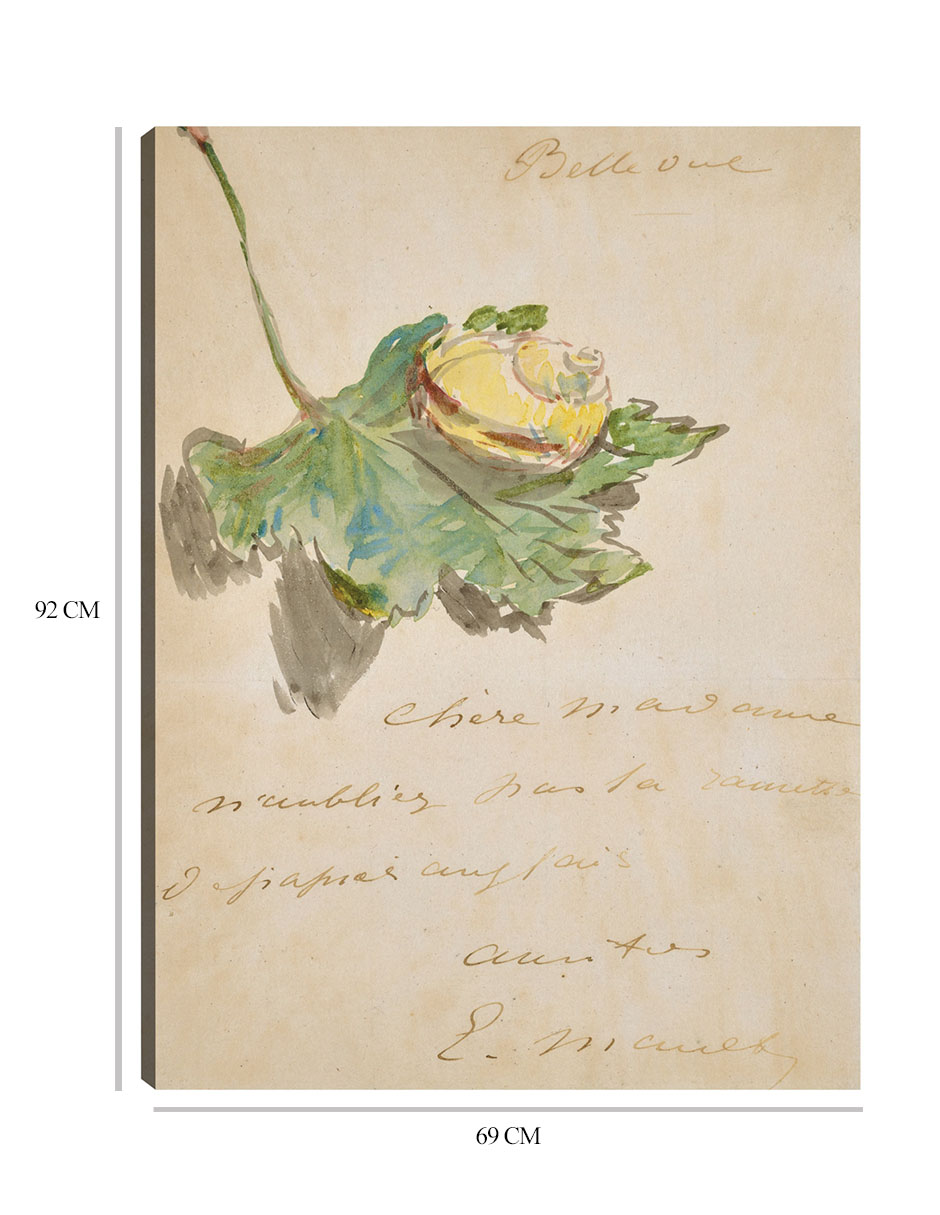 Bellevue
chère madame
n'oubliez pas la ramette
de papier anglais
amitiés
E. Manet
92 CM
69 CM